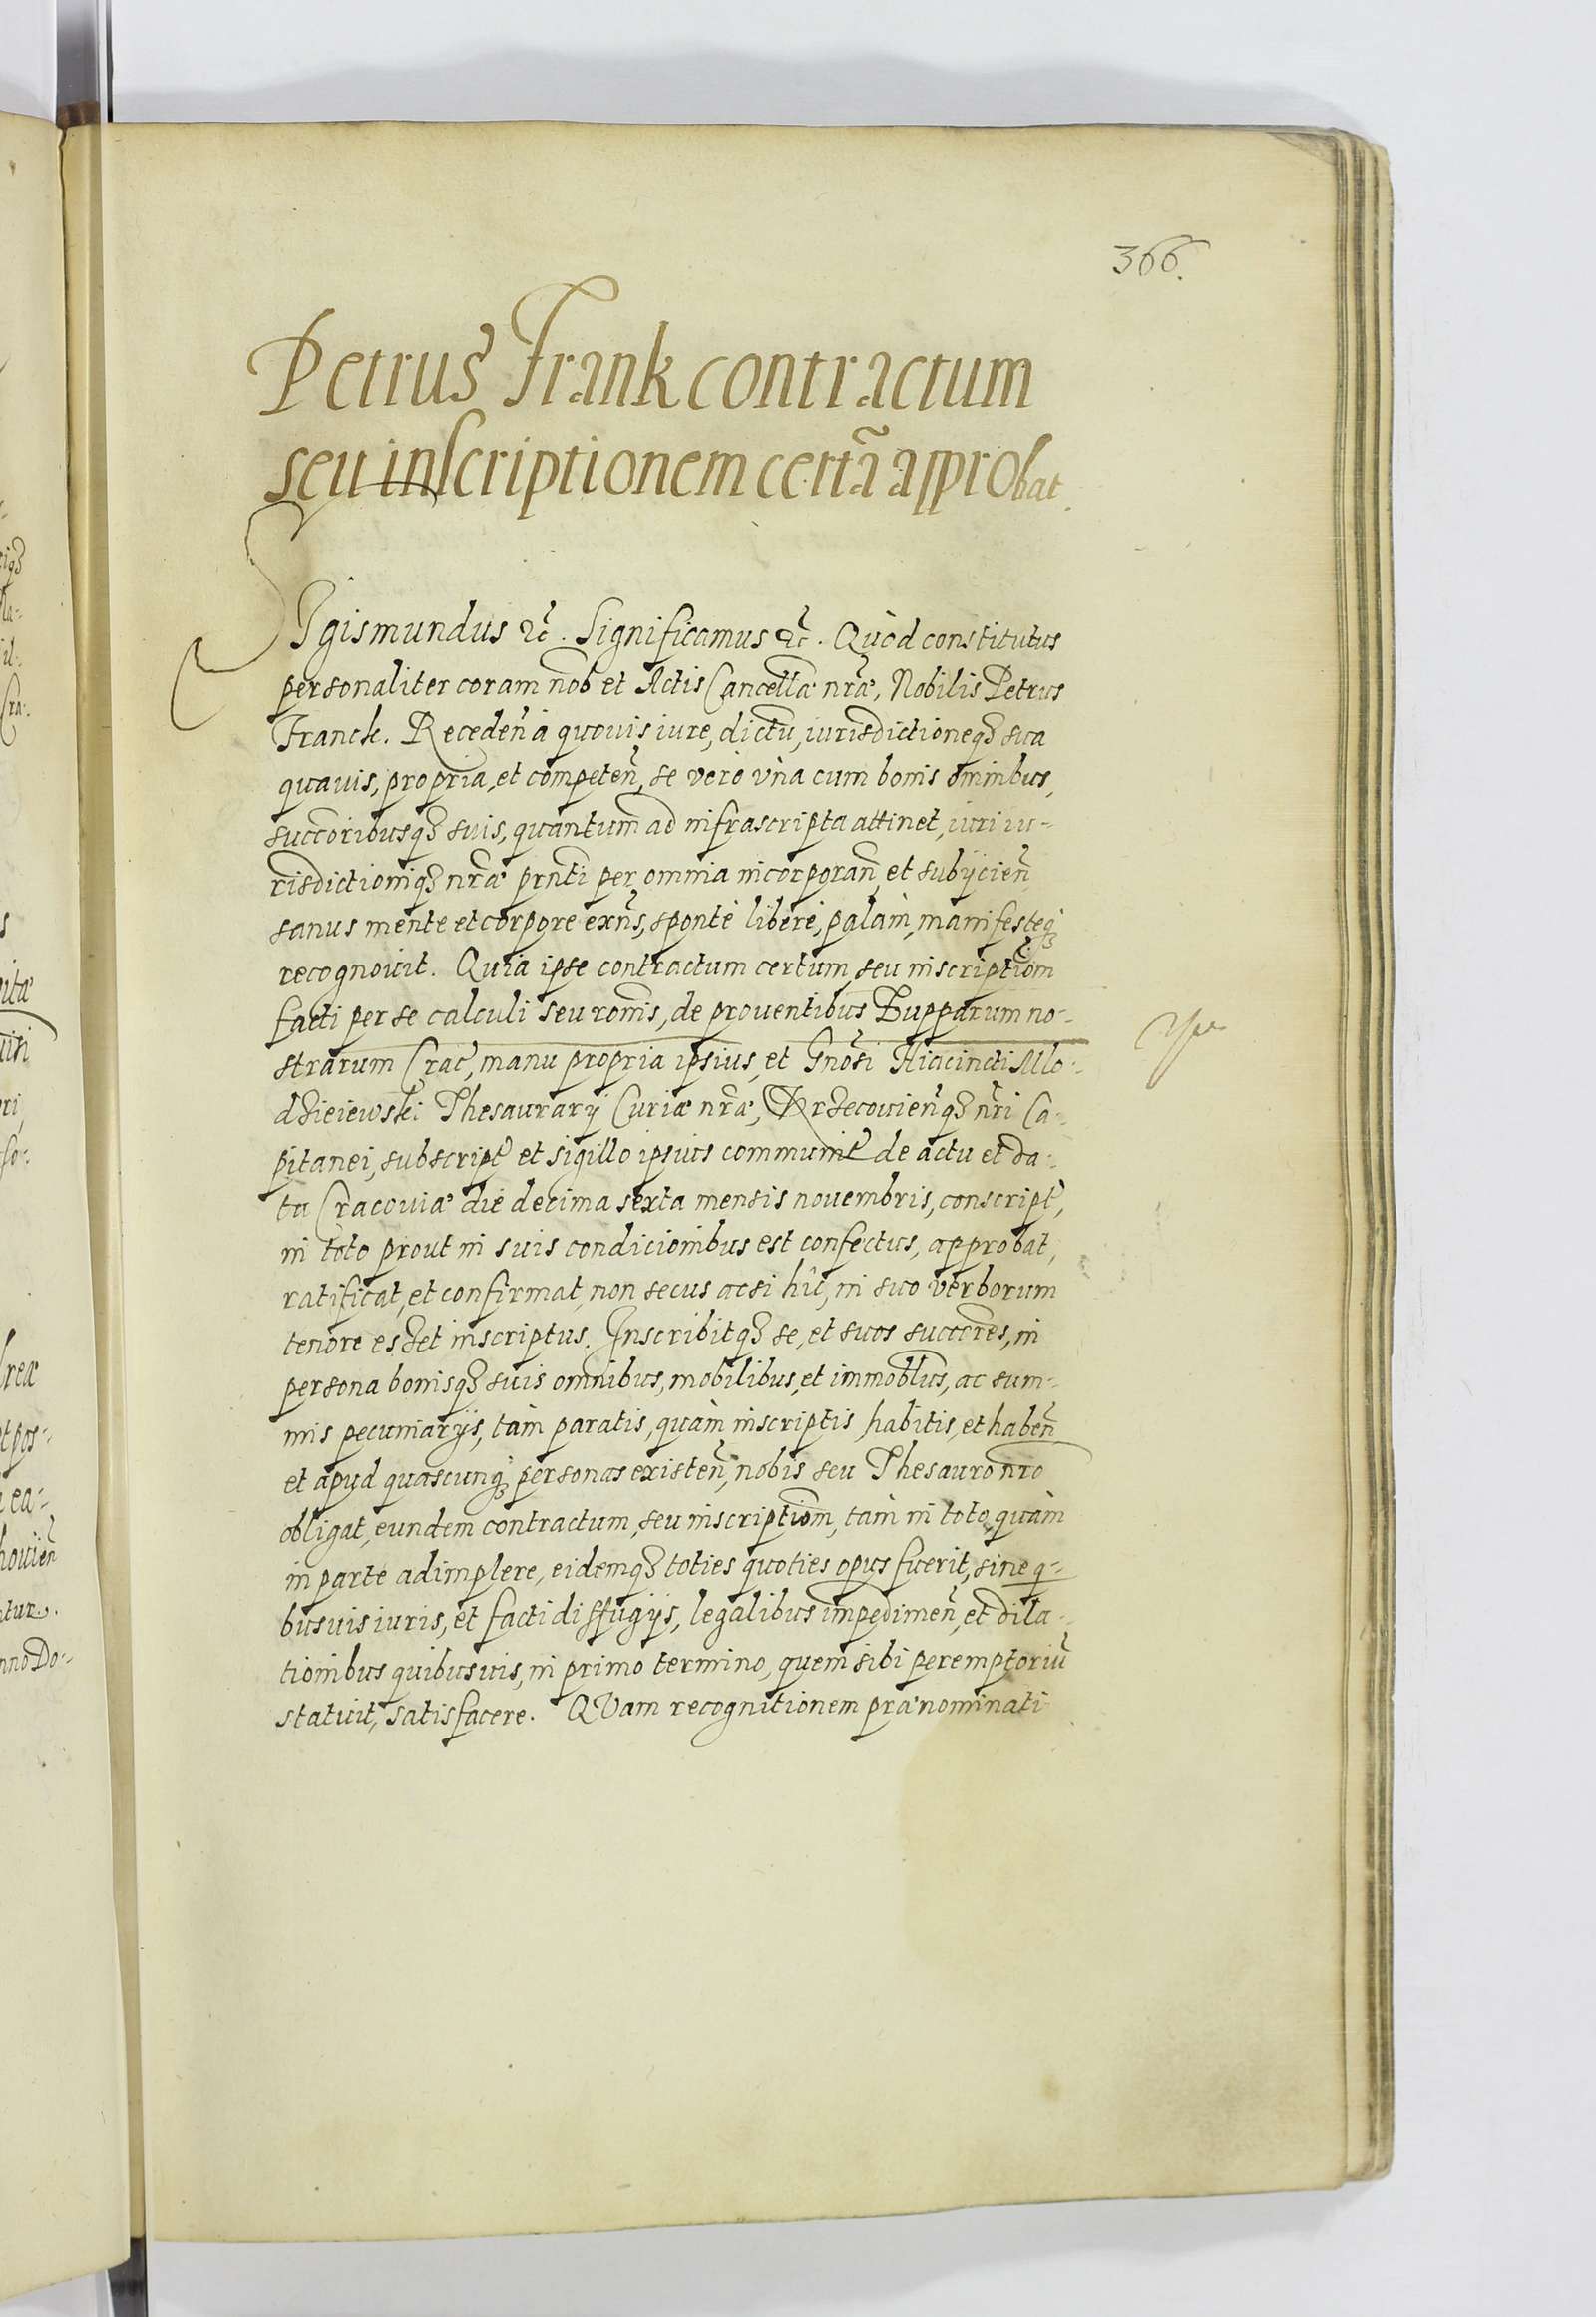 366.
Petrus Frank contractum
seu inscriptionem certã approbat.
SIgismundus &c. Significamus &c. Quòd constitutus
personaliter coram nob et Actis Cancellæ nræ, Nobilis Petrus
Franck. Receden̄ à quouis iure, dictu, iurisdictioneq3 sua
quauis, propria, et competen̄, se verò vna cum bonis omnibus,
succoribusq3 suis, quantum ad infrascripta attinet, iuri iu-
risdictioniq3 nræ prnti per omnia incorporan̄, et subijcien̄
sanus mente et corpore exn̄s, spontè liberè, palàm, manifesteq3
recognouit. Quia ipse contractum certum, seu inscription̄m
facti per se calculi seu ronis, de prouentibus Zupparum no-
strarum Crac̄, manu propria ipsius, et Gnosi Hiacincti Mlo-
dzieiewski Thesaurarij Curiæ nræ, Krzecouien̄q3 nri Ca-
pitanei, subscript et sigillo ipsius communit de actu et da-
tu Cracouiæ die decima sexta mensis nouembris, conscript,
in toto prout in suis condicionibus est confectus, approbat,
ratificat, et confirmat, non secus acsi hîc, in suo verborum
tenore esset inscriptus. Inscribitq3 se, et suos succeres, in
persona bonisq3 suis omnibus, mobilibus, et immoblbus, ac sum-
mis pecuniarijs, tàm paratis, quàm inscriptis habitis, et haben̄
et apud quascunq3 personas existen̄, nobis seu Thesauro nro
obligat, eundem contractum, seu inscriptiom, tàm in toto, quàm
in parte adimplere, eidemq3 toties quoties opus fuerit, sine q-
busuis iuris, et facti diffugijs, legalibus impedimen̄, et dila-
tionibus quibusuis, in primo termino, quem sibi peremptoriũ
statuit, satisfacere. QVam recognitionem prænominati